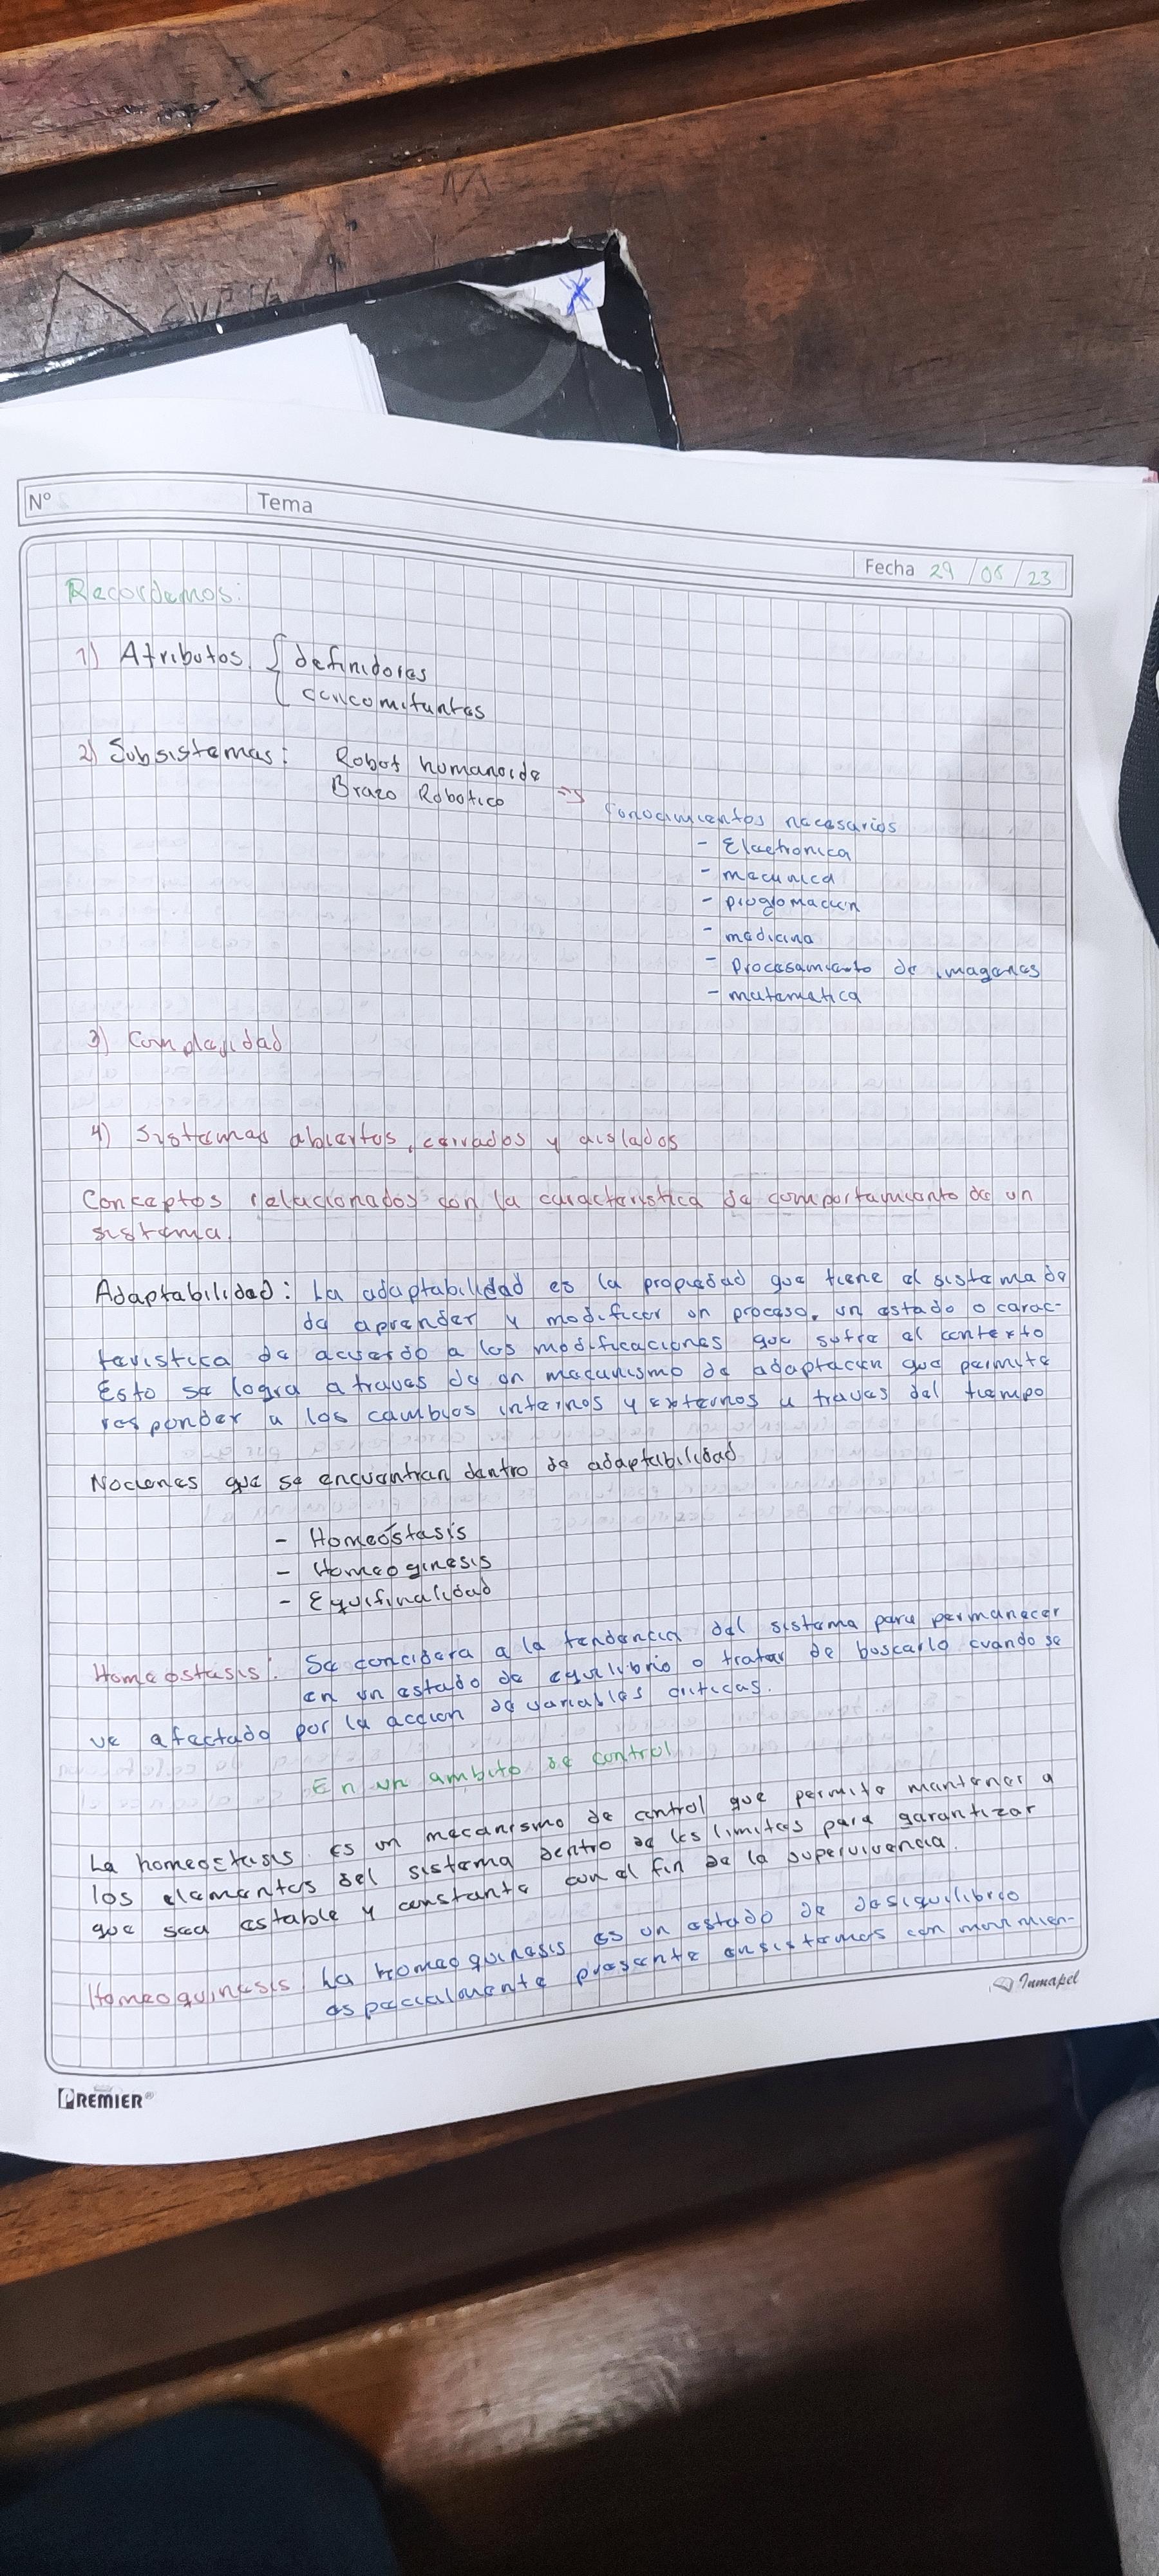 Nº Tema
Fecha 29/05/23
Recordemos:
1) Atributos { definidores
concomitantes
2) Subsistemas: Robot humanoide
Brazo Robotico => Conocimientos necesarios
- Electronica
- mecanica
- programacion
- medicina
- Procesamiento de imagenes
- matematica
3) Complejidad
4) Sistemas abiertos, cerrados y aislados
Conceptos relacionados con la caracteristica de comportamiento de un
sistema.
Adaptabilidad: La adaptabilidad es la propiedad que tiene el sistema de
de aprender y modificar un proceso, un estado o carac-
teristica de acuerdo a las modificaciones que sufre el contexto
Esto se logra a traves de un mecanismo de adaptacion que permite
responder a los cambios internos y externos a traves del tiempo
Nociones que se encuentran dentro de adaptabilidad
- Homeóstasis
- Homeoginesis
- Equifinalidad
Homeostasis: Se concidera a la tendencia del sistema para permanecer
en un estado de equilibrio o tratar de boscarlo cuando se
ve afectado por la accion de variables criticas.
En un ambito de control
La homeostasis es un mecanismo de control que permite mantener a
los elementos del sistema dentro de los limites para garantizar
que sea estable y constante con el fin de la supervivencia.
Homeoquinesis: La homeoquinesis es un estado de desiquilibrio
especialmente presente en sistemas con movimien-
Inmapel
PREMIER®